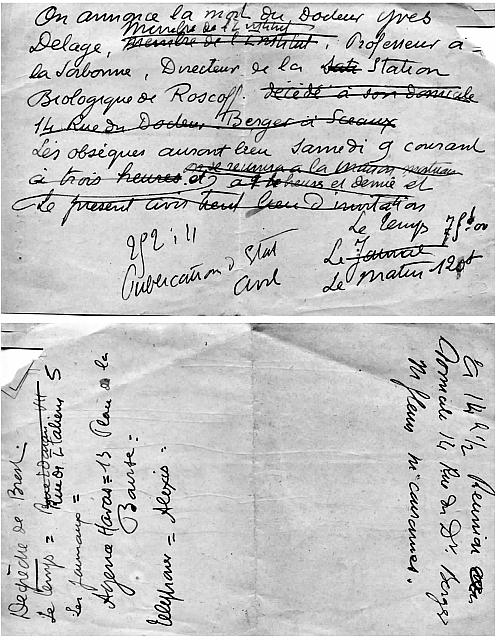 On annonce la mort du Docteur Yves
Membre de l'Institut
Delage, Membre de l'Institut, Professeur à
la Sorbonne, Directeur de la Station
Biologique de Roscoff décédé à son domicile
14 Rue du Docteur Berger à Sceaux
Les obsèques auront lieu Samedi 9 courant
on se réunira à la maison
à trois heures et à heures et demie et
Le présent avis tient lieu d'invitation
Le Temps 75
Le Journal
Le Matin 120
Publication d'Etat
Civil
Dépêche de Brest.
Le Temps = Rue des Italiens 5
les journaux =
Agence Havas = 13 Place de la
Bourse =
téléphoner = Alexis =
à 14 h 1/2 Réunion
Domicile 14 Rue du Dr Berger
Ni fleurs ni couronnes.